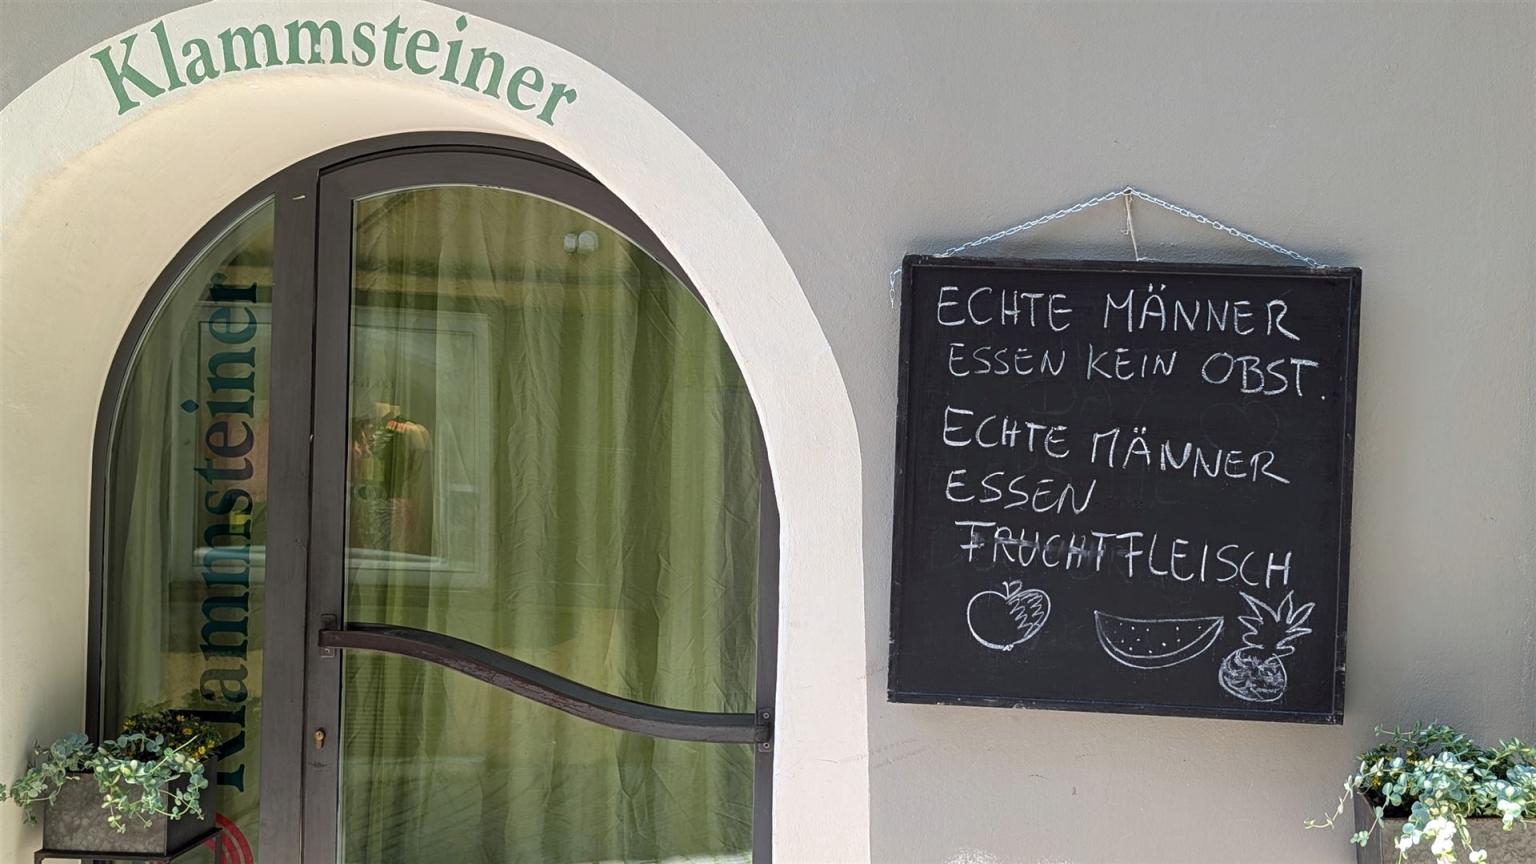 Klammsteiner
Klammsteiner
ECHTE MÄNNER
ESSEN KEIN OBST.
ECHTE MÄNNER
ESSEN
FRUCHTFLEISCH